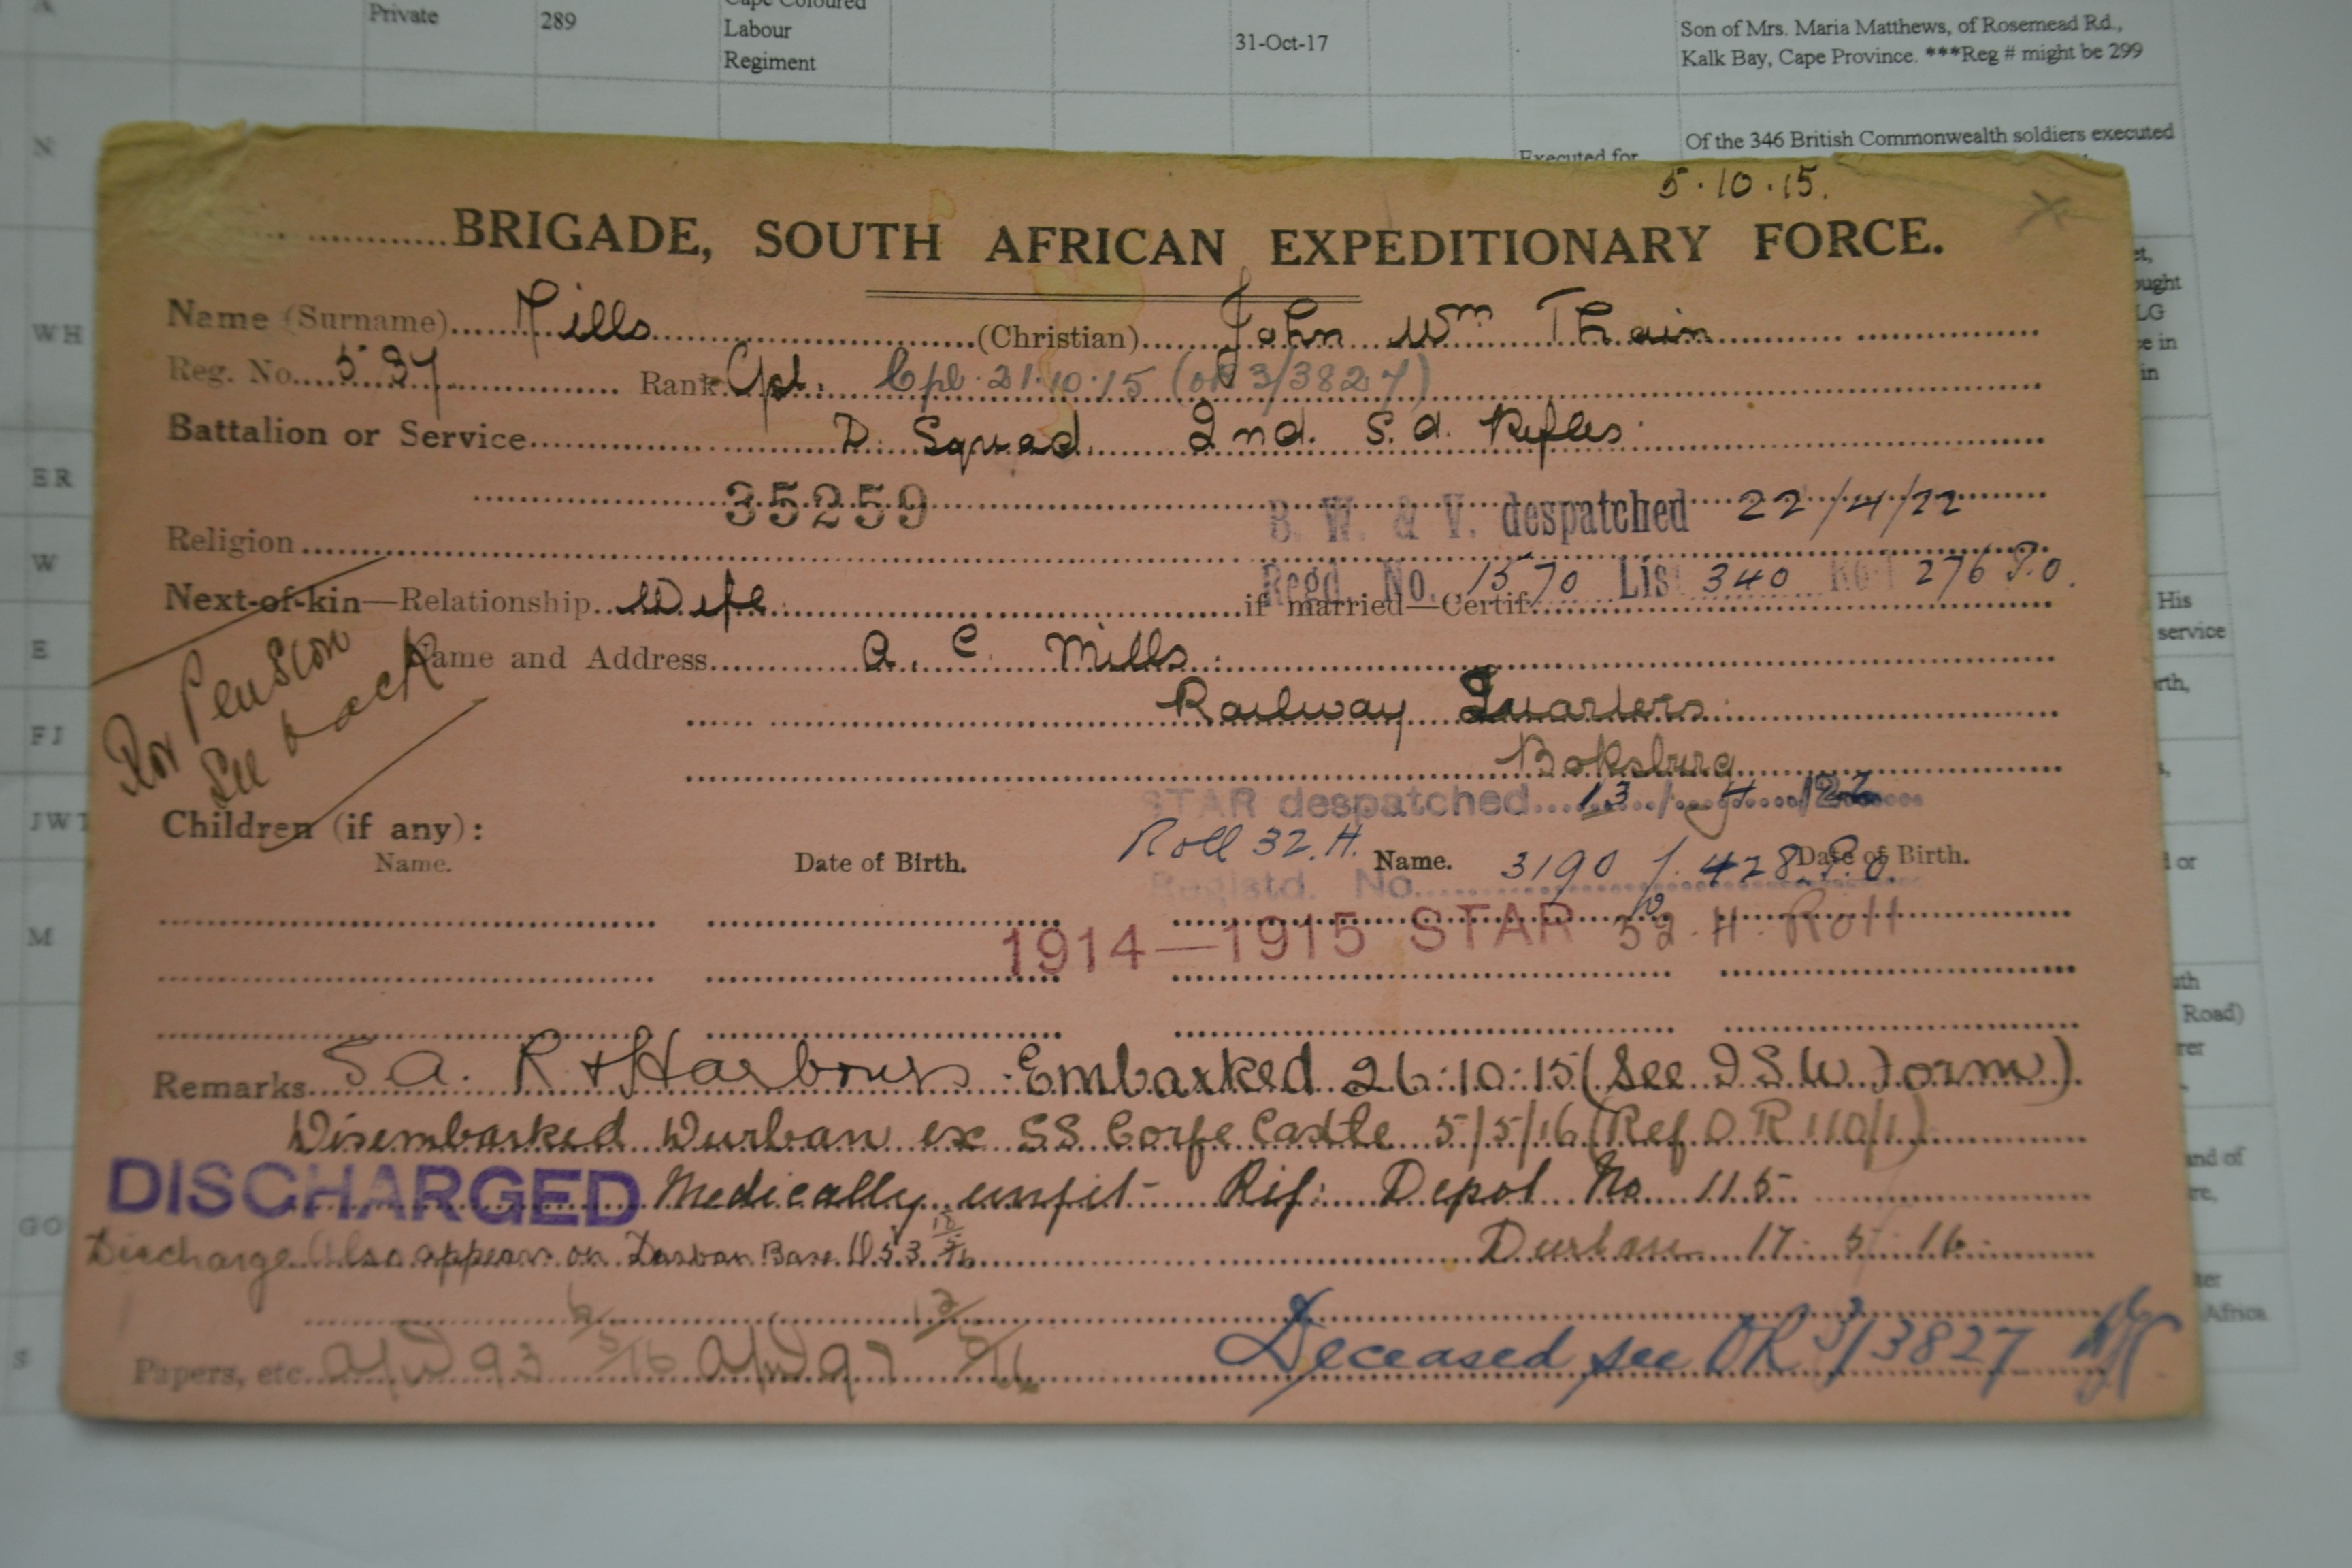 A
Private
289
Cape Coloured
Labour
Regiment
31-Oct-17
Son of Mrs. Maria Matthews, of Rosemead Rd.,
Kalk Bay, Cape Province. ***Reg # might be 299
N
Executed for
Of the 346 British Commonwealth soldiers executed
5.10.15.
BRIGADE, SOUTH AFRICAN EXPEDITIONARY FORCE.
Name (Surname) Mills (Christian) John Wm Thain
Reg. No. 537 Rank Cpl. Cpl. 21.10.15 (OR 3/3827)
Battalion or Service D. Squad 2nd. S.A. Rifles.
35259
B. W. & V. despatched 22/4/22
Religion
Regd. No. 1570 List 340 Roll 276 P.O.
Next-of-kin—Relationship Wife if married—Certif.
Name and Address A. C. Mills.
For Pension
See back
Railway Quarters
Boksburg
STAR despatched 13/4/22
Children (if any):
Roll 32.H.
Name. Date of Birth. Name. Date of Birth.
Registd. No. 3190 /. 428 P.O.
1914—1915 STAR 32. H. Roll
Remarks S.A. R & Harbours. Embarked 26:10:15 (See D S W Form).
Disembarked Durban ex SS Corfe Castle 5/5/16 (Ref O R 110/1)
DISCHARGED Medically unfit - Rif: Depot No 115
Discharge Also appears on Durban Base 1053
Durban 17. 5. 16.
Papers, etc. A/W 93 6/5/16 A/W 97 12/5/16
Deceased see OR 3/3827
WH
ER
W
E
FJ
JWT
M
GO
S
et,
ought
LG
e in
in
His
service
rth,
d or
uth
Road)
rer
and of
re,
ter
Africa.